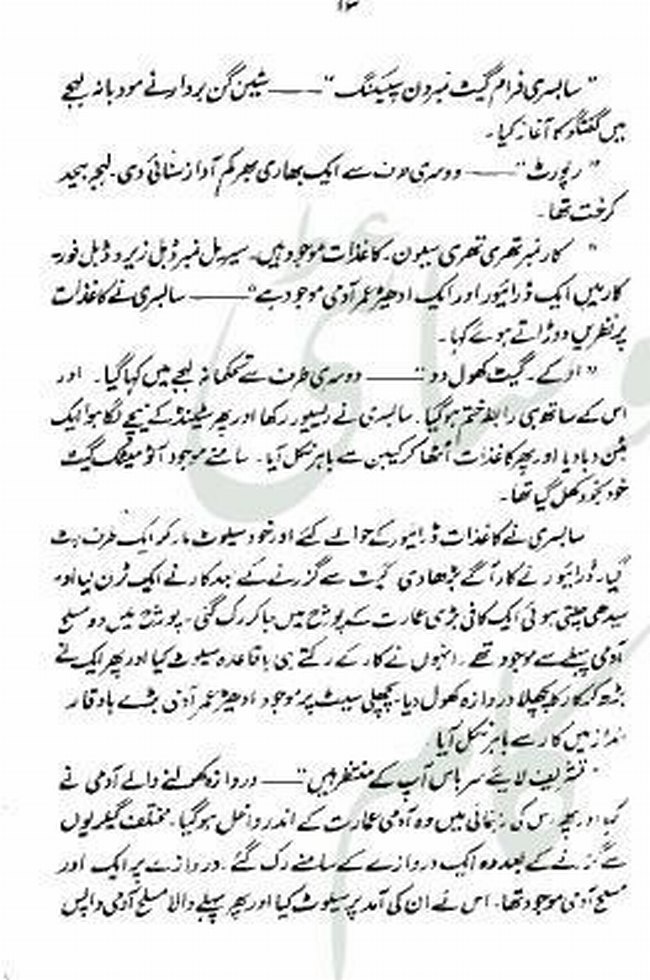 ۱۳
" سالسری فرام گیٹ نمبر ون سپیکنگ " ــــــ مشین گن بردار نے مودبانہ لہجے
میں گفتگو کا آغاز کیا۔
" رپورٹ " ــــــ دوسری طرف سے ایک بھاری بھرکم آواز سنائی دی۔ لہجہ بیحد
کرخت تھا۔
" کار نمبر تھری تھری سیون۔ کاغذات موجود ہیں۔ سیریل نمبر ڈبل زیرو ڈبل فور۔
کار میں ایک ڈرائیور اور ایک ادھیڑ عمر آدمی موجود ہے " ــــــ سالسری نے کاغذات
پر نظریں دوڑاتے ہوئے کہا۔
" اوکے۔ گیٹ کھول دو " ــــــ دوسری طرف سے تحکمانہ لہجے میں کہا گیا۔ اور
اس کے ساتھ ہی رابطہ ختم ہو گیا۔ سالسری نے رسیور رکھا اور پھر سٹینڈ کے نیچے لگا ہوا ایک
بٹن دبا دیا اور پھر کاغذات اُٹھا کر کیبن سے باہر نکل آیا۔ سامنے موجود آٹومیٹک گیٹ
خود بخود کھل گیا تھا۔
سالسری نے کاغذات ڈرائیور کے حوالے کئے اور خود سیلوٹ مار کر ایک طرف ہٹ
گیا۔ ڈرائیور نے کار آگے بڑھا دی گیٹ سے گزرنے کے بعد کار نے ایک ٹرن لیا اور
سیدھی چلتی ہوئی ایک کافی بڑی عمارت کے پورچ میں جا کر رک گئی۔ پورچ میں دو مسلح
آدمی پہلے سے موجود تھے۔ انہوں نے کار کے رکتے ہی باقاعدہ سیلوٹ کیا اور پھر ایک نے
بڑھ کر کار کا پچھلا دروازہ کھول دیا۔ پچھلی سیٹ پر موجود ادھیڑ عمر آدمی بڑے باوقار
انداز میں کار سے باہر نکل آیا۔
" تشریف لائیے سر باس آپ کے منتظر ہیں " ــــــ دروازہ کھولنے والے آدمی نے
کہا اور پھر اس کی رہنمائی میں وہ آدمی عمارت کے اندر داخل ہو گیا۔ مختلف گیلریوں
سے گزرنے کے بعد وہ ایک دروازے کے سامنے رک گئے۔ دروازے پر ایک اور
مسلح آدمی موجود تھا۔ اس نے ان کی آمد پر سیلوٹ کیا اور پھر پہلے والا مسلح آدمی واپس